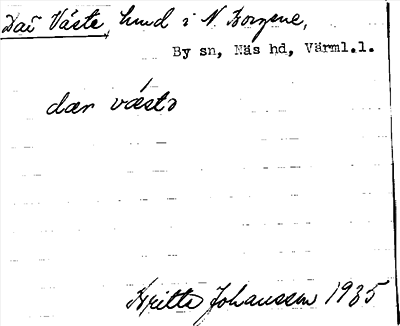 Där Väste, hund i N. Borgene,
By sn, Näs hd, Värml.l.
dær vǽstə
Britta Johansson 1935